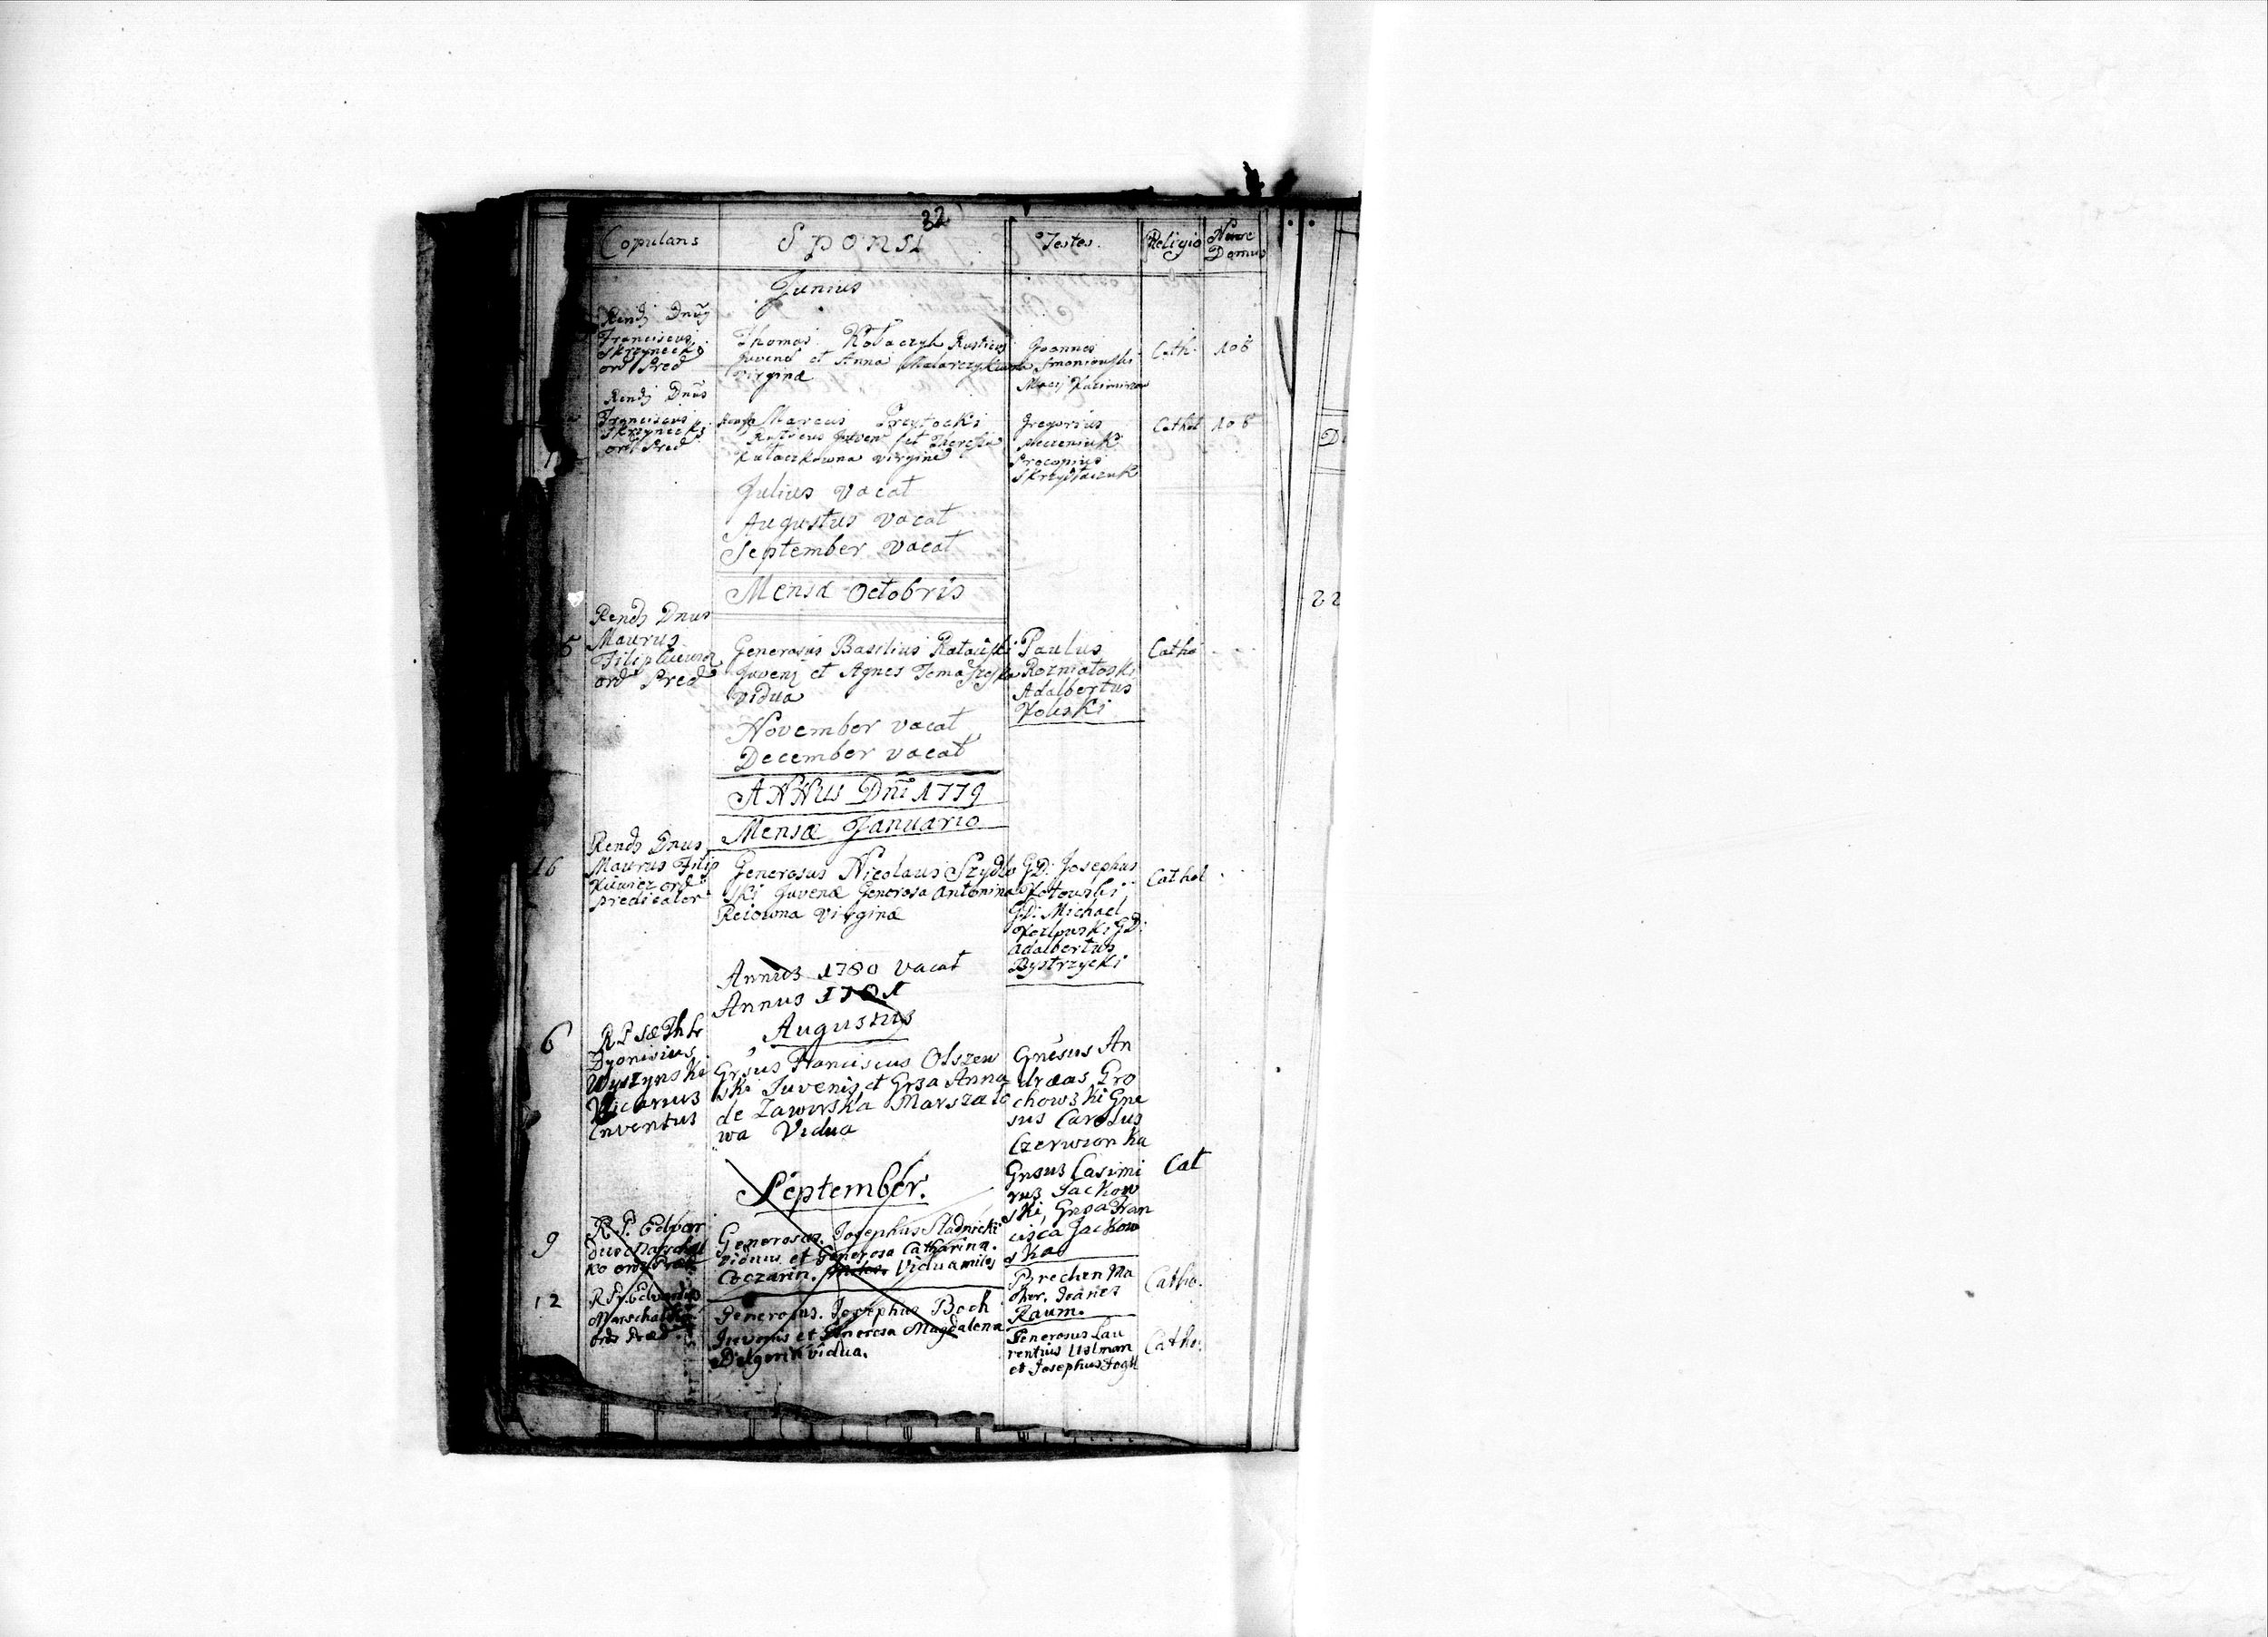 32
Copulans Sponsi Testes Religio Num Domus
Junius
Rends Dnus
Franciscus
Skrzynecki
ord Pred
Thomas Kołaczyk Rusticus
Juvenis et Anna
virgine
Joannes
Smoniowski
Macij Kazimirow
Cath. 108
Rends Dnus
Franciscus
Skrzynecki
ord Pred
Marcus
Rusticus Juven et Theresia
virgine
Gregorius
Procopius
Cathol 108
Julius vacat
Augustus vacat
September vacat
Mensæ Octobris
5
Rends Dnus
Maurus
ord Pred
Generosus Basilius
Juvenis et Agnes
vidua
Paulus
Rozniatoski
Adalbertus
Catho
November vacat
December vacat
ANNus Dni 1779
Mensæ Januario
16
Rends Dnus
Maurus Filip
kiewicz ord
predicator
Generosus Nicolaus Szydło
ski Juvenæ Generosa Antonina
Reiowna Virginæ
GD: Josephus
Kotowski
GD: Michael
GD:
Adalbertus
Bystrzycki
Cathol
Annus 1780 vacat
Annus 1781
Augustus
6
Dyonisius
Wyszynski
Vicarius
Conventus
Grsus Franciscus Olszew
ski Juvenis et Grsa Anna
de Zawirska Marszało
wa Vidua
Gnesus An
dræas Gro
chowski Gne
sus Carolus
Czerwionka
Gnsus Casimi
rus Jackow
ski, Gnsa Fran
cisca Jackow
ska
Cat
September.
9
R. P. Edvar
dus Marschal
ko ord Præd
Generosus. Josephus Stadnicki
viduus et Generosa Catharina.
Coczarin. Vidua miles
Brechen Ma
ther. Joanes
Raum.
Catho.
12
R. P. Edvardus
Marschalko
ord Præd
Generosus. Josephus Boch
Juvenis et Generosa Magdalena
vidua.
Generosus Lau
rentius Uslman
et Josephus Fogtl
Catho.
22